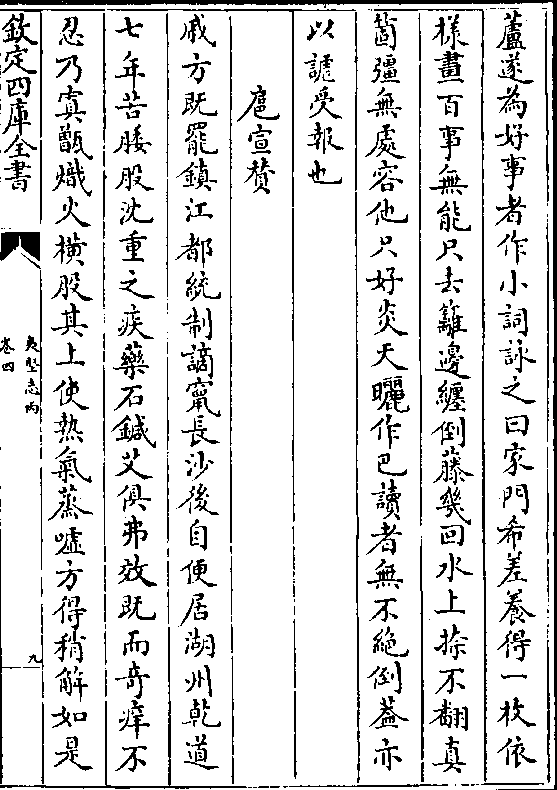 蘆遂為好事者作小詞詠之曰家門希差養得一枚依
樣畫百事無能只去籬邊纏倒藤幾回水上捺不翻真
箇彊無處容他只好炎天曬作巴讀者無不絕倒蓋亦
以謔受報也
扈宣贊
戚方既罷鎮江都統制謫甯長沙後自便居湖州乾道
七年苦腰股沈重之疾藥石鍼艾俱弗效既而奇痒不
忍乃寘甑熾火橫股其上使熱氣蒸噓方得稍解如是
欽定四庫全書
夷堅志丙
卷四
九